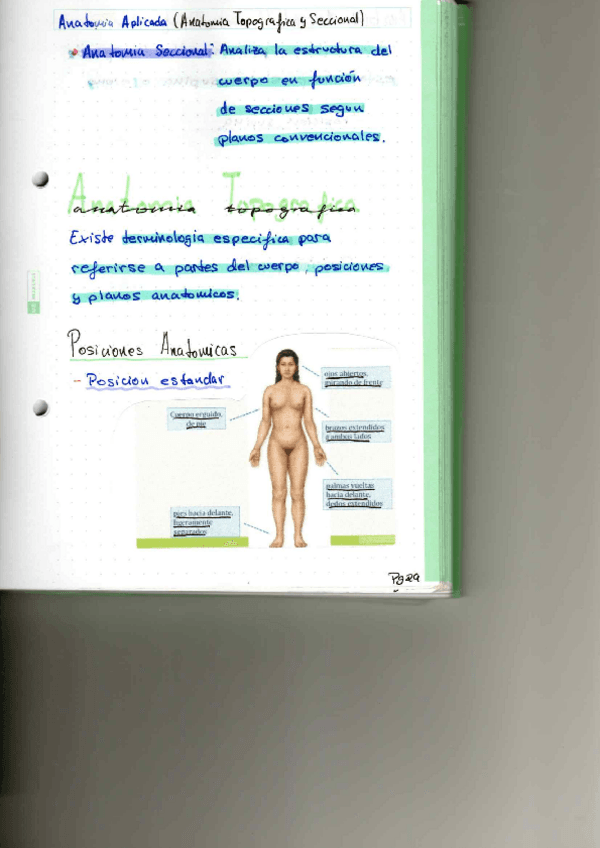 Anatomia Aplicada (Anatomia Topografica y Seccional)
Anatomia Seccional: Analiza la estructura del
cuerpo en función
de secciones segun
planos convencionales.
Anatomia Topografica
anatomia topografica
Existe terminologia especifica para
referirse a partes del cuerpo, posiciones
y planos anatomicos.
Posiciones Anatomicas
- Posicion estandar
ojos abiertos,
mirando de frente
Cuerpo erguido,
de pie
brazos extendidos
a ambos lados
palmas vueltas
hacia delante,
dedos extendidos
pies hacia delante,
ligeramente
separados
Pg 29